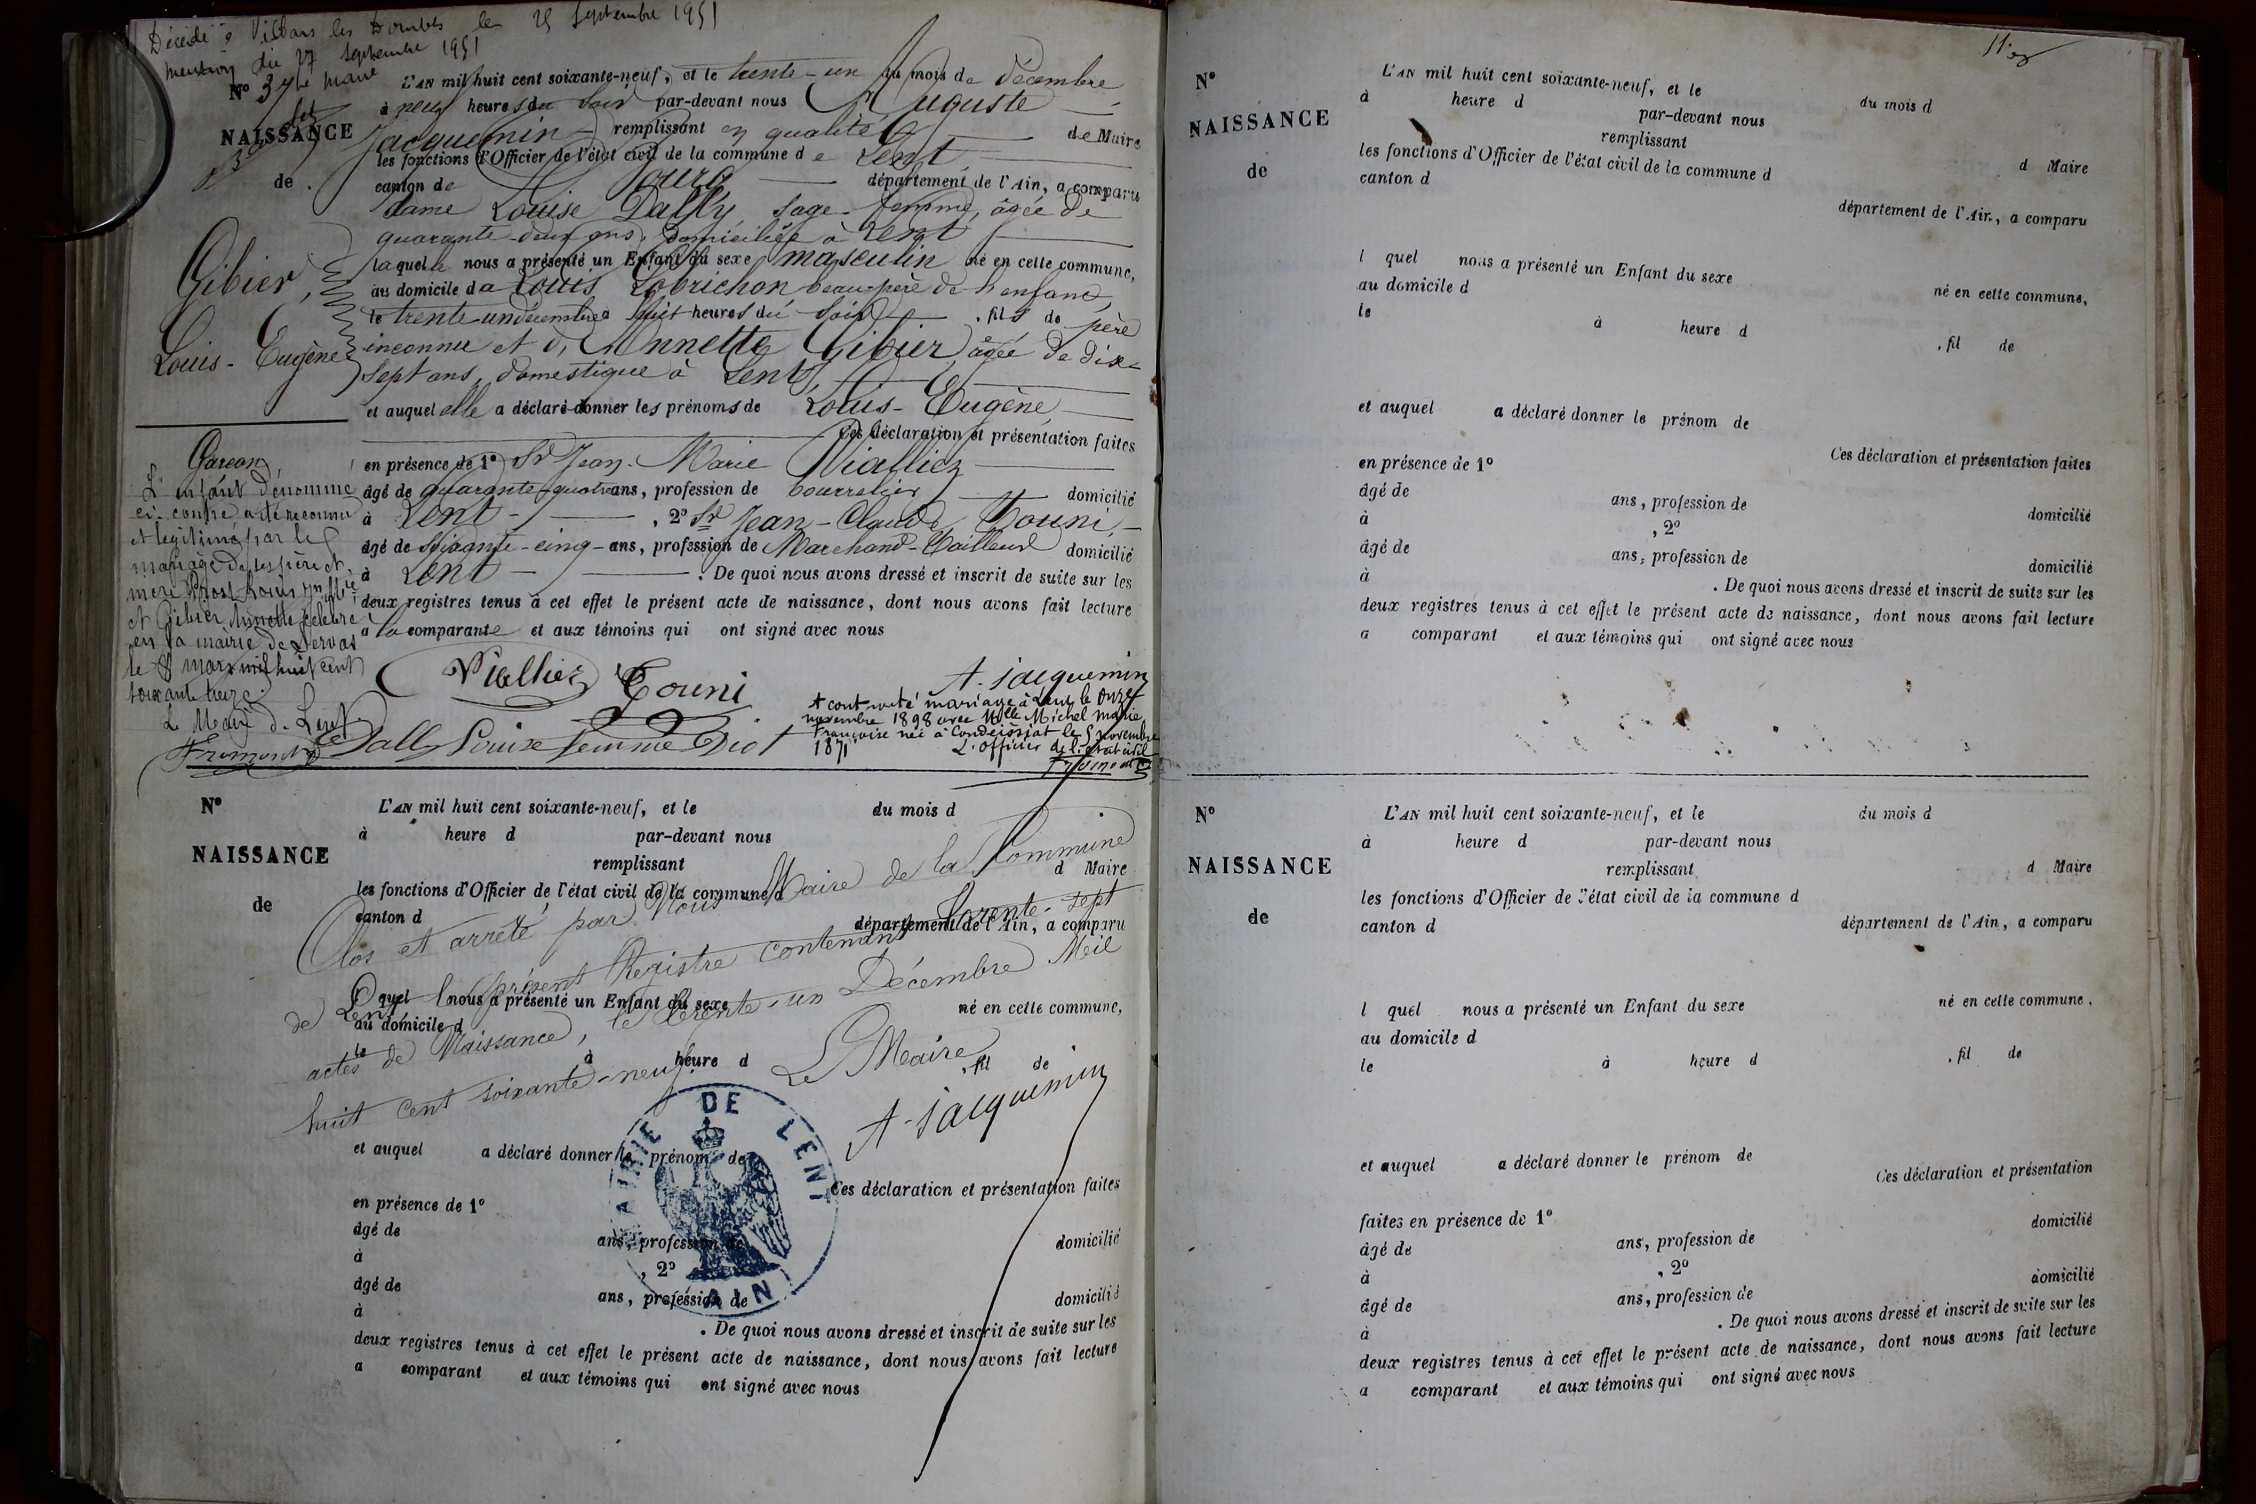 Décédé à Villars les Dombes le 25 Septembre 1951
mention du 27 Septembre 1951
N° 37
NAISSANCE
de
Gibier,
Louis-Eugène
L'AN mil huit cent soixante-neuf, et le trente-un du mois de décembre
à neuf heures du soir par-devant nous Auguste
Jacquemin remplissant en qualité de Maire
les fonctions d'Officier de l'état civil de la commune de Lent
canton de Bourg département de l'Ain, a comparu
dame Louise Dally, sage-femme, âgée de
quarante-deux ans, domiciliée à Lent
laquelle nous a présenté un Enfant du sexe masculin né en cette commune,
au domicile de Louis Lobrichon beau-père de l'enfant,
le trente-un décembre à huit heures du soir, fils de père
inconnu et d'Annette Gibier, âgée de dix-
sept ans, domestique à Lent,
et auquel elle a déclaré donner les prénoms de Louis-Eugène
Ces déclaration et présentation faites
en présence de 1° Sr Jean-Marie Vialliez
âgé de quarante-quatre ans, profession de bourrelier domicilié
à Lent, 2° Sr Jean-Claude Touni,
âgé de soixante-cinq ans, profession de Marchand-Tailleur domicilié
à Lent. De quoi nous avons dressé et inscrit de suite sur les
deux registres tenus à cet effet le présent acte de naissance, dont nous avons fait lecture
a la comparante et aux témoins qui ont signé avec nous
Garçon
L'enfant dénommé
ci-contre a été reconnu
et légitimé par le
mariage de ses père et
mère
et Gibier Annette célébré
en la mairie de Servas
le 8 mars mil huit cent
soixante treize.
Le Maire de Lent
Fromont
Vialliez Touni A. Jacquemin
Dally Louise femme Diot
A contracté mariage à Lent le onze
novembre 1898 avec Mlle Michel Marie
Françoise née à Condeissiat le 5 novembre
1871
L'officier de l'état civil
N°
NAISSANCE
de
L'AN mil huit cent soixante-neuf, et le du mois d
à heure d par-devant nous
remplissant d Maire
les fonctions d'Officier de l'état civil de la commune d
canton d département de l'Ain, a comparu
l quel nous a présenté un Enfant du sexe né en cette commune,
au domicile d
le à heure d , fil de
et auquel a déclaré donner le prénom de
Ces déclaration et présentation faites
en présence de 1°
âgé de ans, profession de domicilié
à , 2°
âgé de ans, profession de domicilié
à . De quoi nous avons dressé et inscrit de suite sur les
deux registres tenus à cet effet le présent acte de naissance, dont nous avons fait lecture
a comparant et aux témoins qui ont signé avec nous
Clos et arrêté par Nous Maire de la Commune
de Lent le présent Registre contenant trente-sept
actes de Naissance, le trente-un Décembre Mil
huit cent soixante-neuf.
Le Maire
A. Jacquemin
MAIRIE DE LENT
AIN
N°
NAISSANCE
de
L'AN mil huit cent soixante-neuf, et le du mois d
à heure d par-devant nous
remplissant d Maire
les fonctions d'Officier de l'état civil de la commune d
canton d département de l'Ain, a comparu
l quel nous a présenté un Enfant du sexe né en cette commune,
au domicile d
le à heure d , fil de
et auquel a déclaré donner le prénom de
Ces déclaration et présentation faites
en présence de 1°
âgé de ans, profession de domicilié
à , 2°
âgé de ans, profession de domicilié
à . De quoi nous avons dressé et inscrit de suite sur les
deux registres tenus à cet effet le présent acte de naissance, dont nous avons fait lecture
a comparant et aux témoins qui ont signé avec nous
N°
NAISSANCE
de
L'AN mil huit cent soixante-neuf, et le du mois d
à heure d par-devant nous
remplissant d Maire
les fonctions d'Officier de l'état civil de la commune d
canton d département de l'Ain, a comparu
l quel nous a présenté un Enfant du sexe né en cette commune,
au domicile d
le à heure d , fil de
et auquel a déclaré donner le prénom de
Ces déclaration et présentation
faites en présence de 1° domicilié
âgé de ans, profession de
à , 2° domicilié
âgé de ans, profession de
à . De quoi nous avons dressé et inscrit de suite sur les
deux registres tenus à cet effet le présent acte de naissance, dont nous avons fait lecture
a comparant et aux témoins qui ont signé avec nous